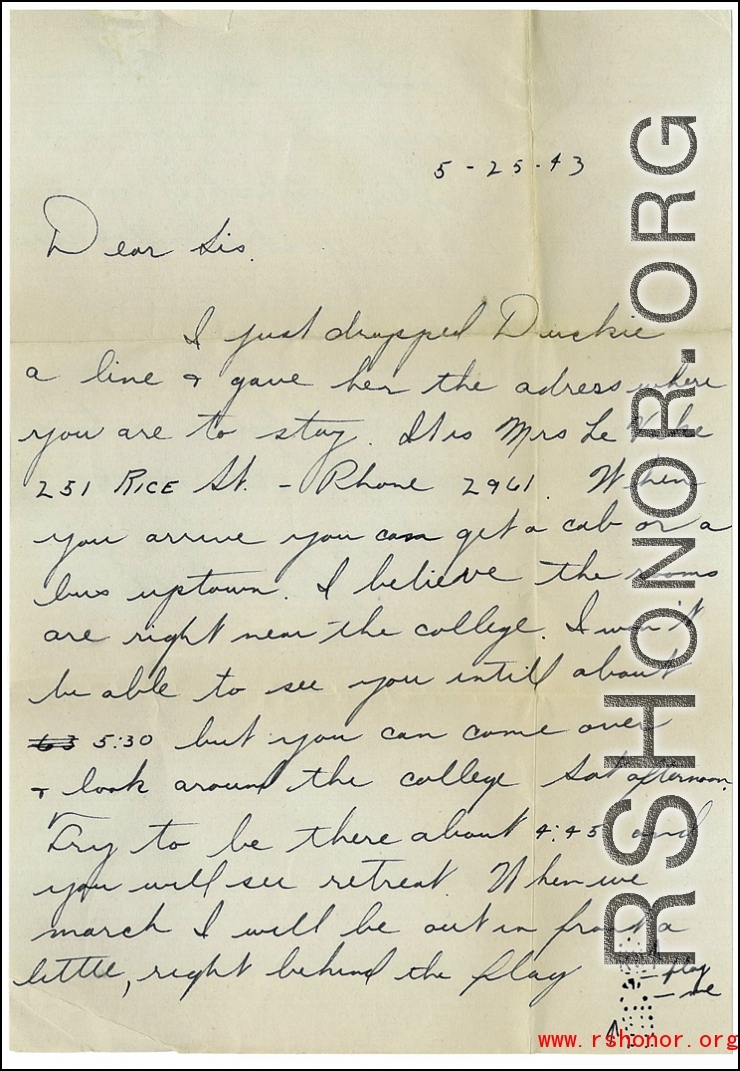 5-25-43
Dear Sis.
I just dropped Duckie
a line & gave her the adress where
you are to stay. It is Mrs Le
251 RICE St. - Phone 2961. When
you arrive you can get a cab or a
bus uptown. I believe the rooms
are right near the college. I won't
be able to see you intill about
5:30 but you can come over
& look around the college Sat afternoon.
Try to be there about 4:45 and
you will see retreat. When we
march I will be out in front a
little, right behind the flag
- flag
- me
RSHONOR.ORG
www.rshonor.org